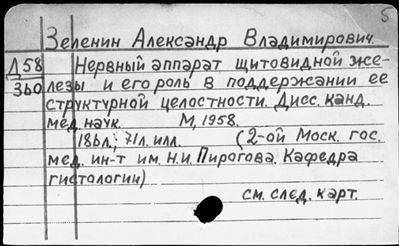 5
Зеленин Александр Владимирович.
Д58 Нервный аппарат щитовидной же-
360 лезы и его роль в поддержании ее
структурной целостности. Дисс. канд.
мед. наук. М, 1958.
186л.; 71л. илл. (2-ой Моск. гос.
мед. ин-т им. Н.И. Пирогова. Кафедра
гистологии)
см. след. карт.